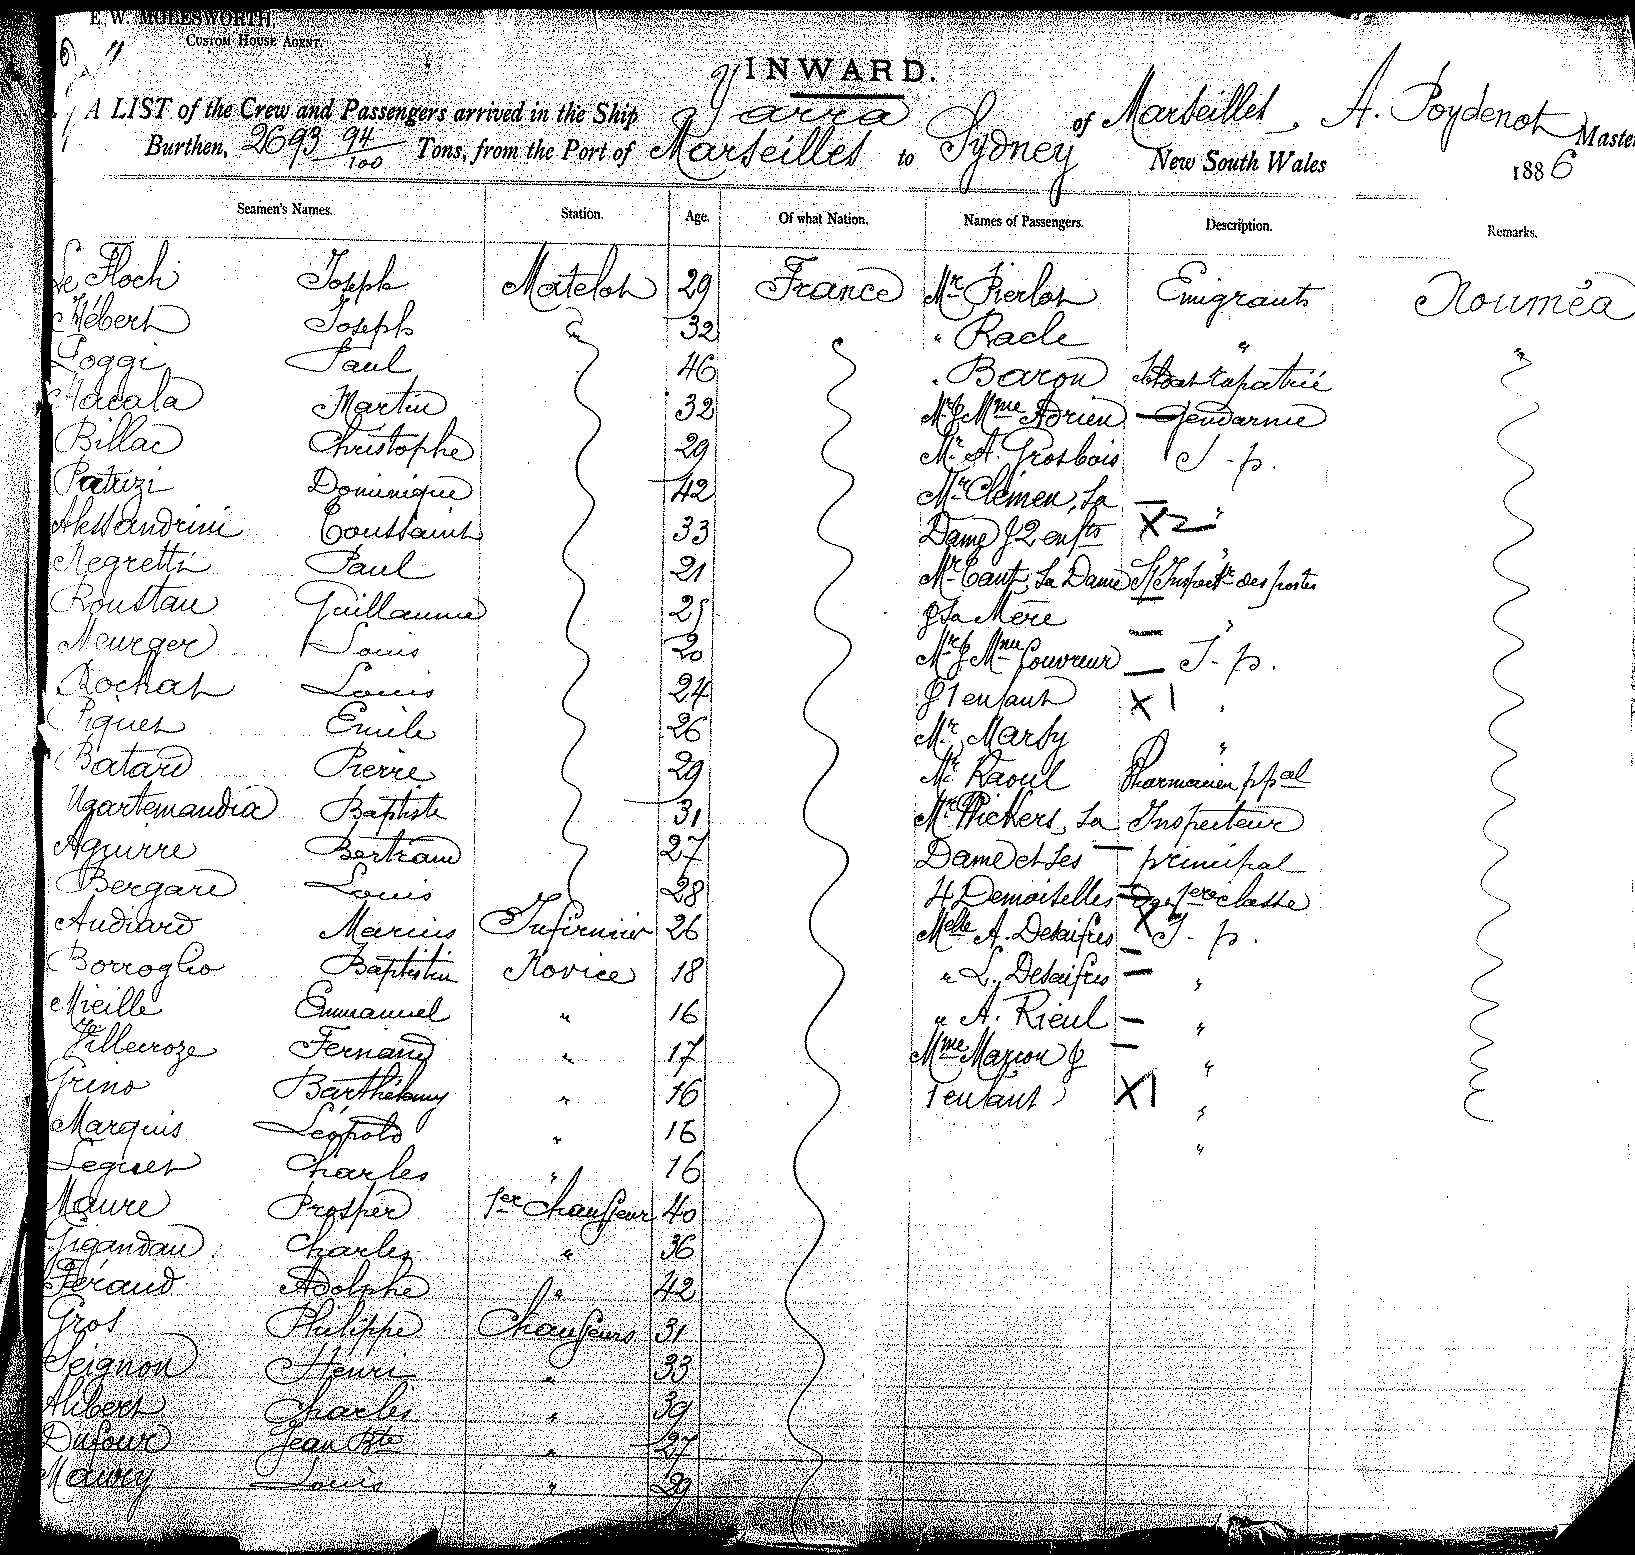 E. W. MOLESWORTH,
CUSTOM HOUSE AGENT.
INWARD.
A LIST of the Crew and Passengers arrived in the Ship Yarra of Marseilles, A. Poydenot Master
Burthen, 2693 94/100 Tons, from the Port of Marseilles to Sydney New South Wales 1886
Seamen's Names. Station. Age. Of what Nation. Names of Passengers. Description. Remarks.
Le Floch Joseph Matelot 29 France Mr. Pierlot Emigrants Nouméa
Hébert Joseph 32 " Racle "
Poggi Paul 46 " Baron rapatrié
Hacala Martin 32 Mr & Mme Adrien Gendarme
Billac Christophe 29 Mr. A. Grosbois S - p.
Patrizi Dominique 42 Mr Clémen, Sa
Alessandrini Toussaint 33 Dame & 2 enfts X 2 "
Negretti Paul 21 Mr , La Dame S/Inspectr des postes
Roustan Guillaume 25 & Sa Mère "
Meurger Louis 20 Mr & Mme Couvreur S - p.
Rochat Louis 24 & 1 enfant X 1 "
Piquet Emile 26 Mr. Marsy "
Batard Pierre 29 Mr. Raoul Pharmacien ppal
Ugartemandia Baptiste 31 Mr. Wickers, Sa Inspecteur
Aguirre Bertrand 27 Dame et Ses principal
Bergare Louis 28 4 Demoiselles de 1ere classe
Audiard Marius Infirmier 26 Melle A. Desaifres X S - p.
Borroglio Baptistin Novice 18 " L. Desaifres "
Mieille Emmanuel " 16 " A. Rieul "
Villecroze Fernand " 17 Mme Marion & "
Grino Barthélemy " 16 1 enfant X1 "
Marquis Léopold " 16 "
Leguet Charles " 16
Maure Prosper 1er Chauffeur 40
Gigandau Charles " 36
Féraud Adolphe " 42
Gros Philippe Chauffeurs 31
Seignon Henri " 33
Alibert Charles " 39
Dufour Jean Bte " 27
Maury Louis " 29